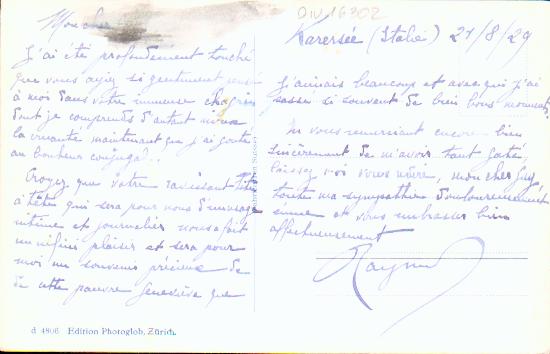 Mon cher
J'ai été profondément touché
que vous ayez si gentiment pensé
à moi dans votre immense chagrin
dont je comprends d'autant mieux
la cruauté maintenant que j'ai goûté
au bonheur conjugal..
Croyez que votre ravissant tête
à tête qui sera pour nous d'un usage
intime et journalier nous a fait
un infini plaisir et sera pour
moi un souvenir précieux de
de cette pauvre Geneviève que
d 4806 Edition Photoglob, Zürich.
DIV 16302
Karersée (Italie) 21/8/29
j'aimais beaucoup et avec qui j'ai
passé si souvent de bien bons moments.
En vous remerciant encore bien
sincèrement de m'avoir tant gâté,
laissez moi vous redire, mon cher
toute ma sympathie douloureusement
émue et vous embrasser bien
affectueusement
Raym